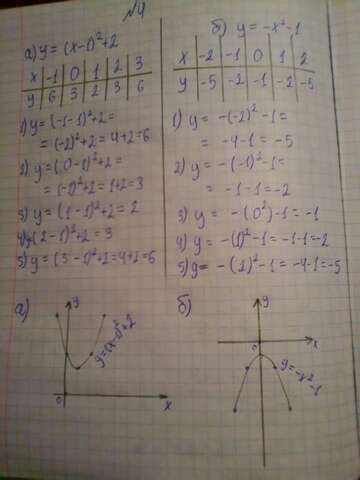 №4
а) y = (x-1)²+2
x -1 0 1 2 3
y 6 3 2 3 6
1) y = (-1-1)²+2 =
= (-2)²+2 = 4+2=6
2) y = (0-1)²+2 =
= (-1)²+2 = 1+2=3
3) y = (1-1)²+2 = 2
4) (2-1)²+2 = 3
5) y = (3-1)²+2=4+2=6
б) y = -x²-1
x -2 -1 0 1 2
y -5 -2 -1 -2 -5
1) y = -(-2)²-1=
= -4-1 = -5
2) y = -(-1)²-1=
= -1-1=-2
3) y = -(0²)-1=-1
4) y = -(1)²-1=-1-1=-2
5) y= -(2)²-1=-4-1=-5
а)
y
y=(x-1)²+2
0
x
б)
y
0
x
y=-x²-1